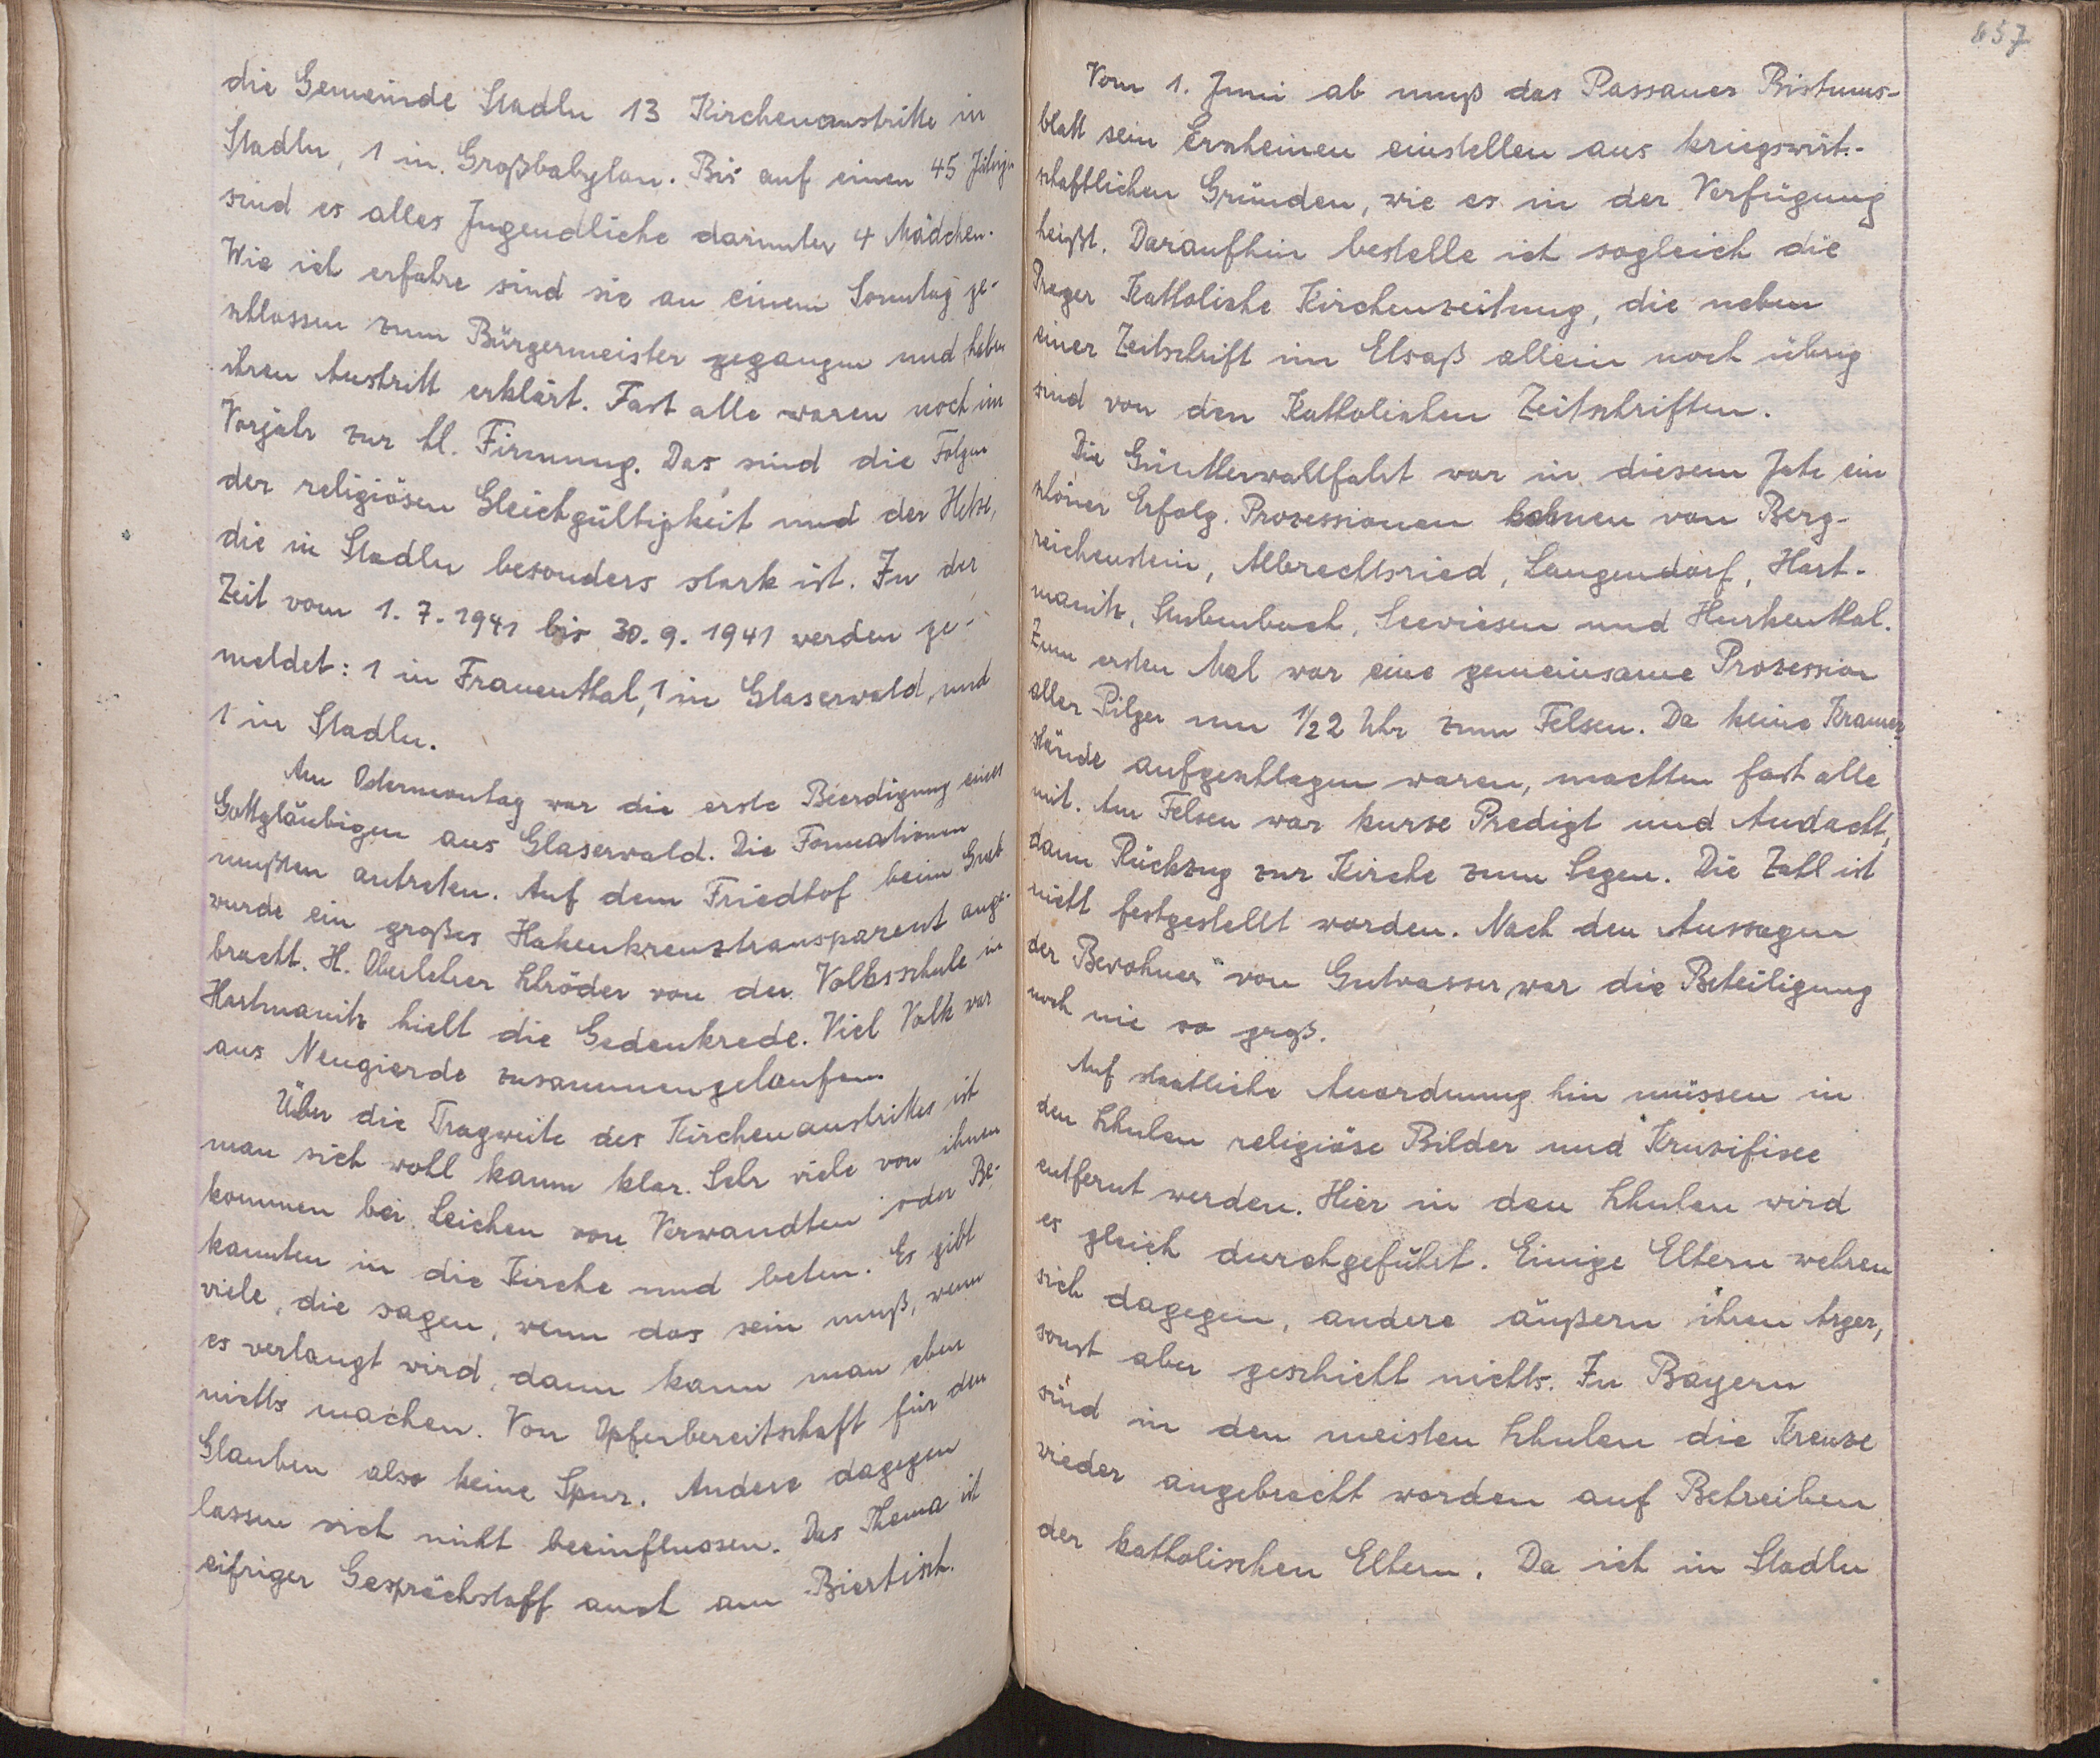 die Gemeinde Stadln 13 Kirchenaustritte in
Stadln, 1 in Großbabylon. Bis auf einen 45 Jährigen
sind es alles Jugendliche darunter 4 Mädchen.
Wie ich erfahre sind sie an einem Sonntag ge-
schlossen zum Bürgermeister gegangen und haben
ihren Austritt erklärt. Fast alle waren noch im
Vorjahr zur hl. Firmung. Das sind die Folgen
der religiösen Gleichgültigkeit und der Hetze,
die in Stadln besonders stark ist. In der
Zeit vom 1. 7. 1941 bis 30. 9. 1941 werden ge-
meldet: 1 in Frauenthal, 1 in Glaserwald, und
1 in Stadln.
Am Ostermontag war die erste Beerdigung eines
Gottgläubigen aus Glaserwald. Die Formationen
mußten antreten. Auf dem Friedhof beim Grab
wurde ein großes Hakenkreuztransparent ange-
bracht. H. Oberlehrer Schröder von der Volksschule in
Hartmanitz hielt die Gedenkrede. Viel Volk war
aus Neugierde zusammengelaufen.
Über die Tragweite des Kirchenaustrittes ist
man sich wohl kaum klar. Sehr viele von ihnen
kommen bei Leichen von Verwandten oder Be-
kannten in die Kirche und beten. Es gibt
viele, die sagen, wenn das sein muß, wenn
es verlangt wird, dann kann man eben
nichts machen. Von Opferbereitschaft für den
Glauben also keine Spur. Andere dagegen
lassen sich nicht beeinflussen. Das Thema ist
eifriger Gesprächstoff auch am Biertisch.
657
Vom 1. Juni ab muß das Passauer Bistums-
blatt sein Erscheinen einstellen aus kriegswirt-
schaftlichen Gründen, wie es in der Verfügung
heißt. Daraufhin bestelle ich sogleich die
Prager Katholische Kirchenzeitung, die neben
einer Zeitschrift im Elsaß allein noch übrig
sind von den Katholischen Zeitschriften.
Die Güntherwallfahrt war in diesem Jahr ein
schöner Erfolg. Prozessionen kahmen von Berg-
reichenstein, Albrechtsried, Langendorf, Hart-
manitz, Stubenbach, Seewiesen und Hurkenthal.
Zum ersten Mal war eine gemeinsame Prozession
aller Pilger um 1/2 2 Uhr zum Felsen. Da keine Kramer-
stände aufgeschlagen waren, machten fast alle
mit. Am Felsen war kurze Predigt und Andacht,
dann Rückzug zur Kirche zum Segen. Die Zahl ist
nicht festgestellt worden. Nach den Aussagen
der Bewohner von Gutwasser war die Beteiligung
noch nie so groß.
Auf staatliche Anordnung hin müssen in
den Schulen religiöse Bilder und Kruzifixe
entfernt werden. Hier in den Schulen wird
es gleich durchgeführt. Einige Eltern wehren
sich dagegen, andere äußern ihren Ärger,
sonst aber geschieht nichts. In Bayern
sind in den meisten Schulen die Kreuze
wieder angebracht worden auf Betreiben
der katholischen Eltern. Da ich in Stadln